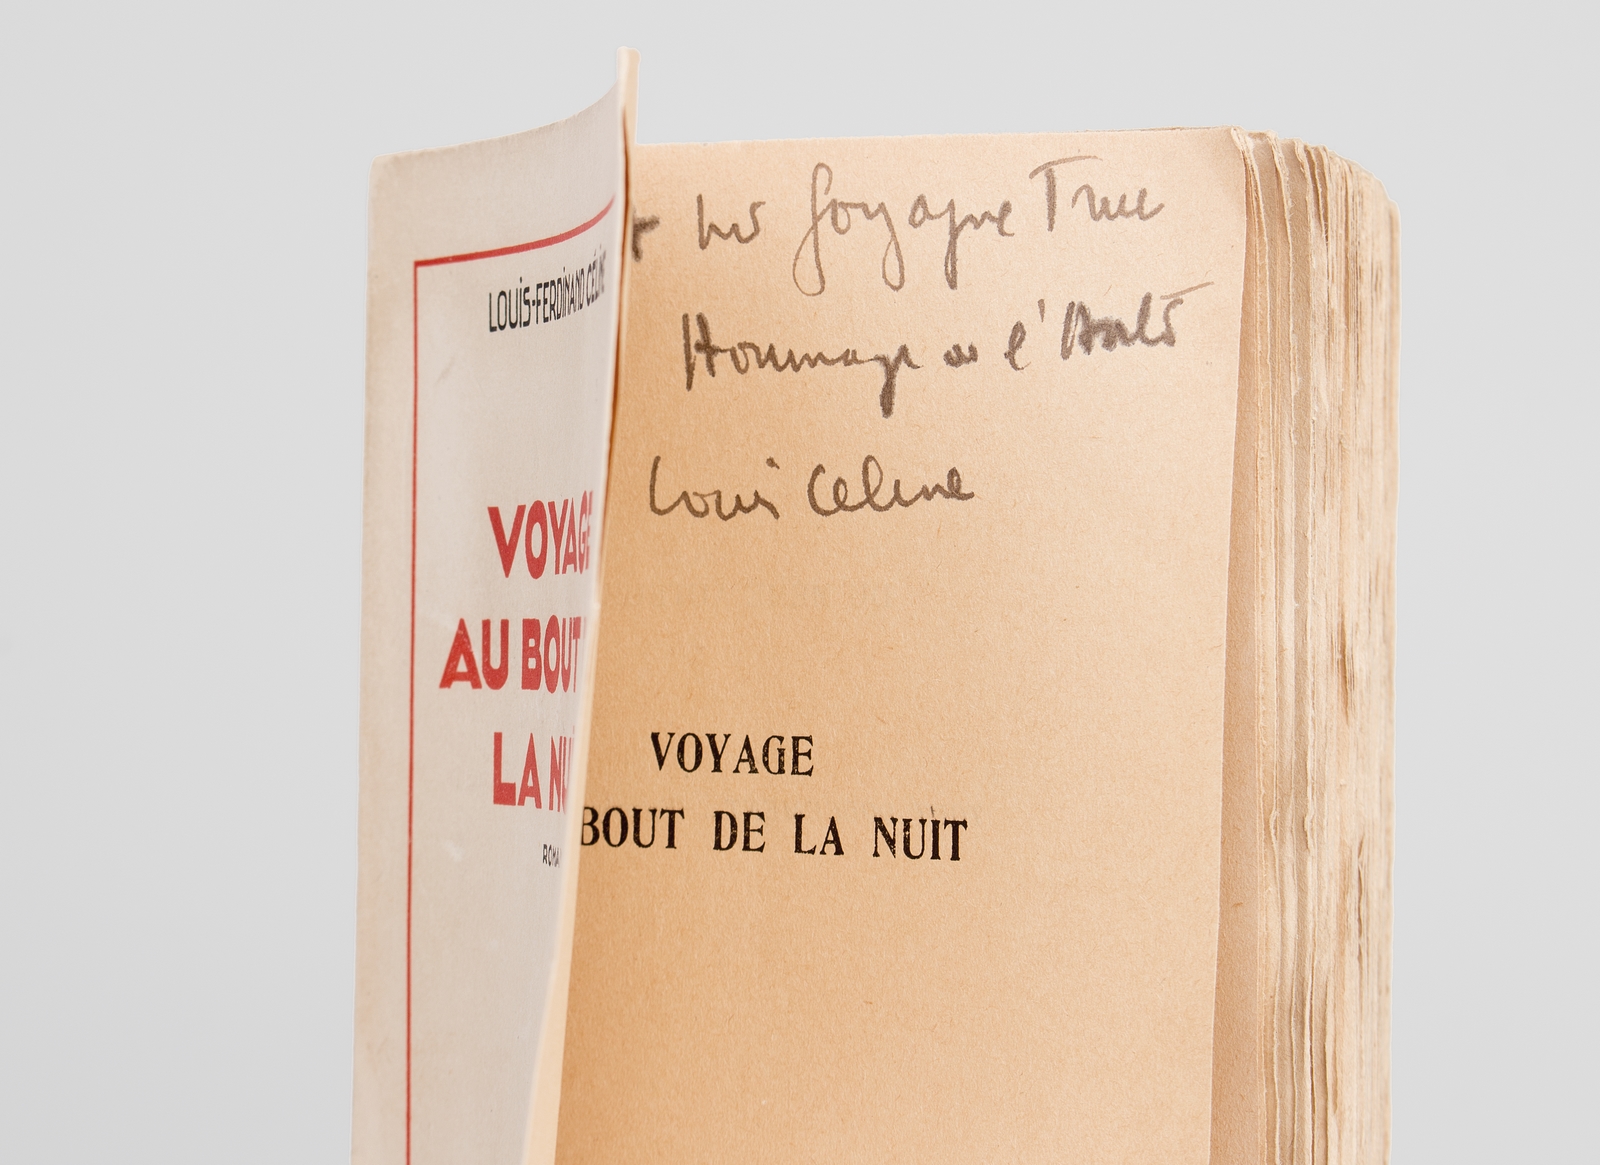 LOUIS-FERDINAND CÉLINE
VOYAGE
AU BOUT
LA NUI
ROMA
Gonzague Truc
Hommage de l'Auteur
Louis Celine
VOYAGE
BOUT DE LA NUIT